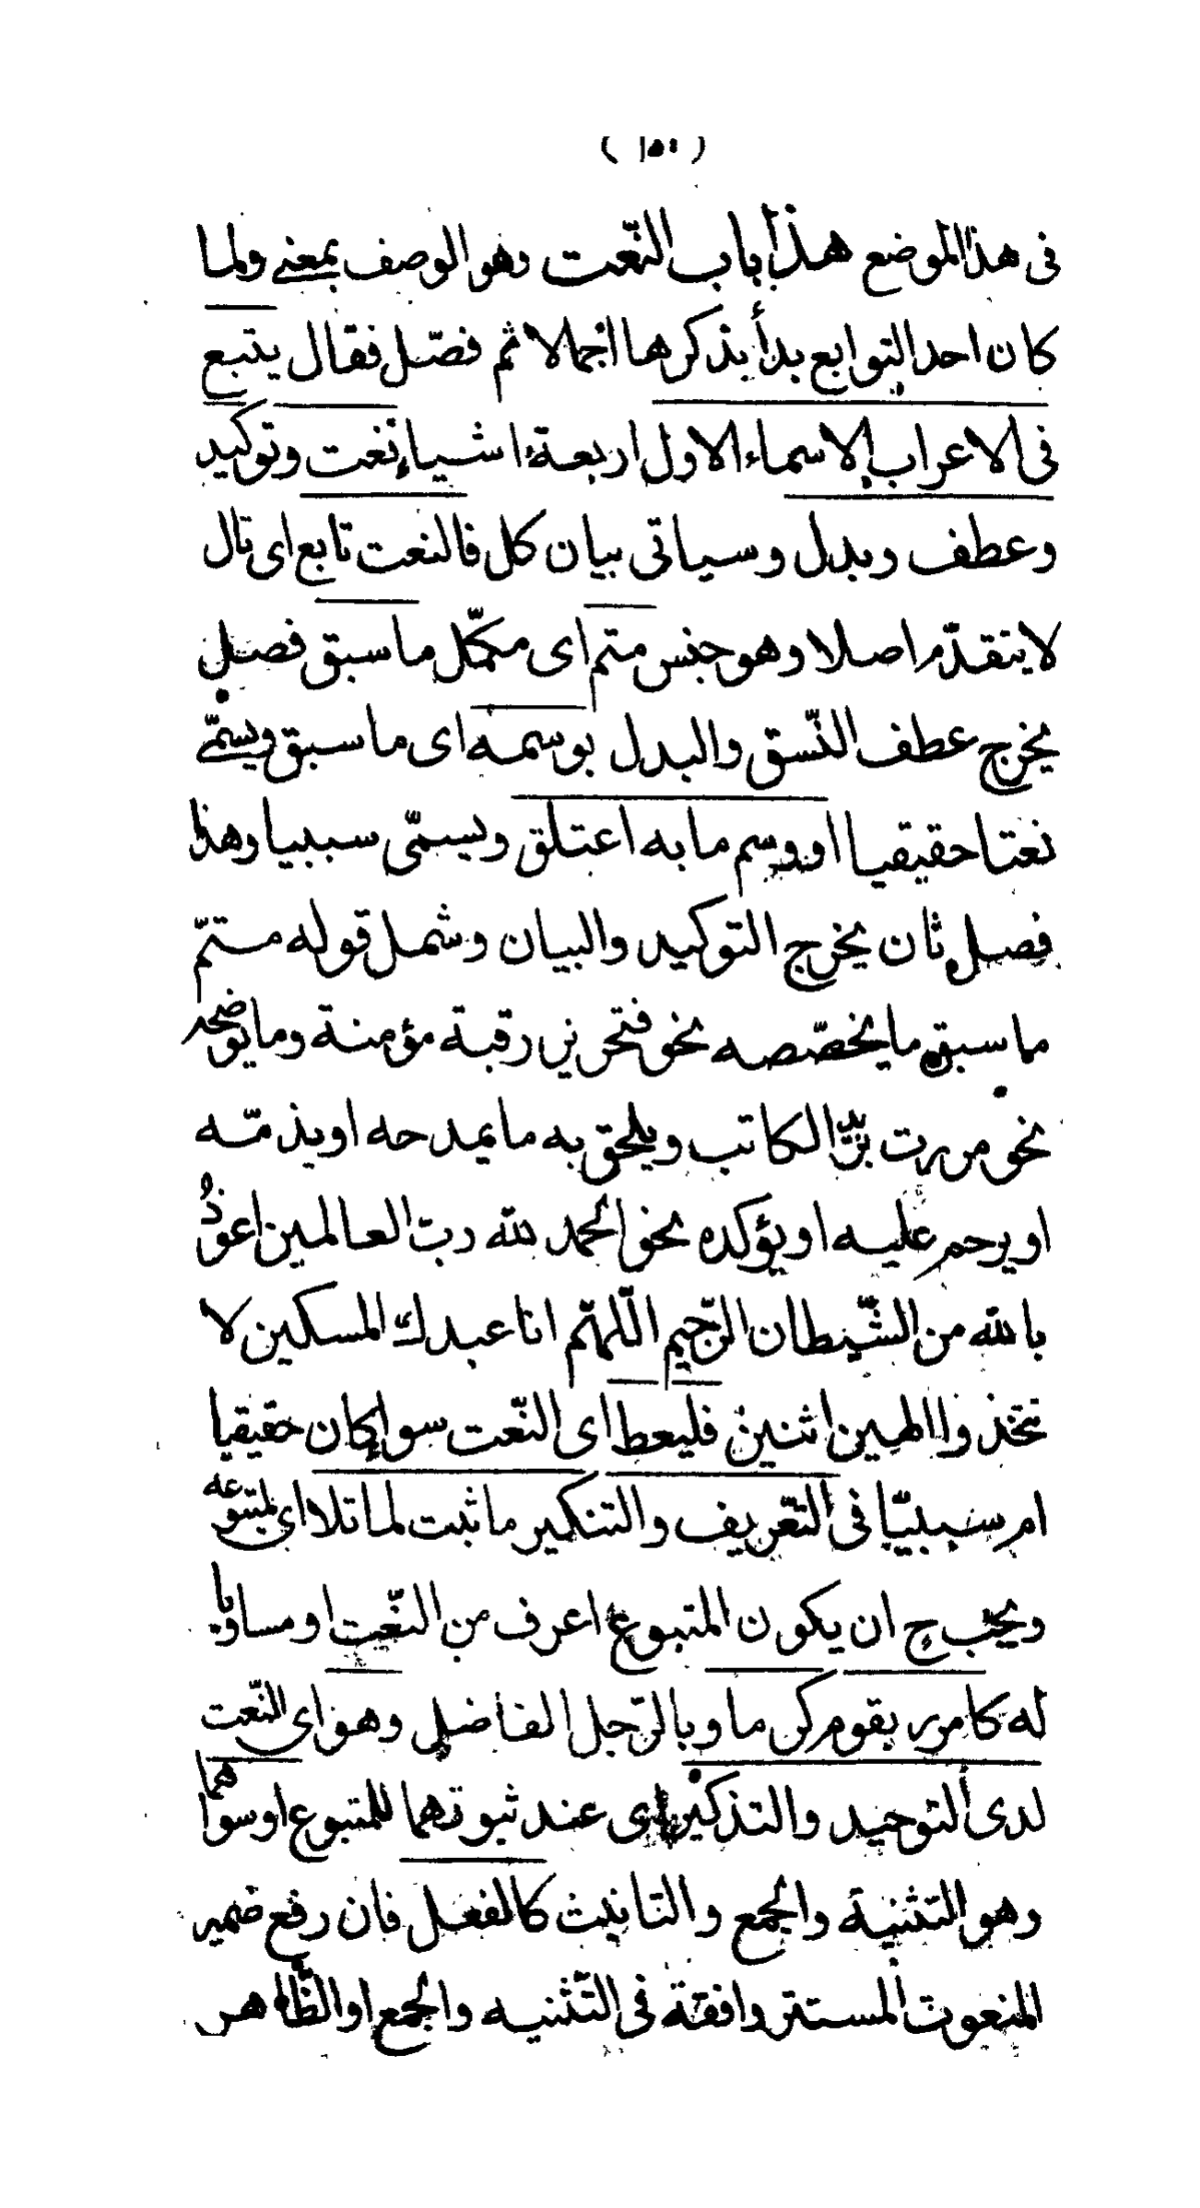 ( ١٥٠ )
فى هذا الموضع هذا باب النّعت وهو الوصف بمعنى ولما
كان احد التوابع بدأ بذكرها اجمالا ثم فصّل فقال يتبع
فى الاعراب الاسماء الاول اربعة اشياء نعت وتوكيد
وعطف وبدل وسياتى بيان كل فالنعت تابع اى تال
لا يتقدّم اصلا وهو جنس متم اى مكمّل ما سبق فصل
يخرج عطف النّسق والبدل بوسمه اى ما سبق ويسمّى
نعتا حقيقيا او وسم ما به اعتلق ويسمّى سببيا وهذا
فصل ثان يخرج التوكيد والبيان وشمل قوله متمّ
ما سبق ما يخصّصه نحو فتحرير رقبة مؤمنة وما يوضحه
نحو مررت بزيد الكاتب ويلحق به ما يمدحه او يذمّه
او يرحم عليه او يؤكده نحو الحمد لله ربّ العالمين اعوذُ
بالله من الشّيطان الرّجيم اللّهمّ انا عبدك المسكين لا
تتخذوا الهين اثنين فليعط اى النّعت سواء كان حقيقيا
ام سببيّا فى التّعريف والتنكير ما ثبت لما تلا اى لمتبوعه
ويجب ح ان يكون المتبوع اعرف من النّعت او مساويا
له كامرر بقوم كرما وبالرّجل الفاضل وهو اى النّعت
لدى التوحيد والتذكير اى عند ثبوتهما للمتبوع او سواهما
وهو التثنية والجمع والتانيث كالفعل فان رفع ضمير
المنعوت المستتر وافقه فى التّثنيه والجمع او الظّاهر